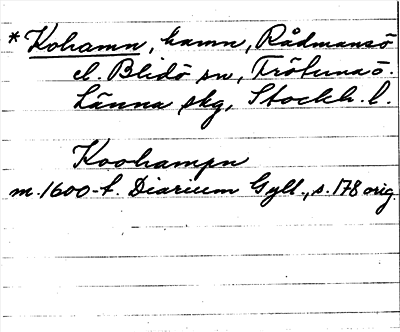 * Kohamn, hamn, Rådmansö
el. Blidö sn, Frötuna o.
Länna skg, Stockh. l.
Koohampn
m. 1600-t. Diarium Gyll., s. 178 orig.